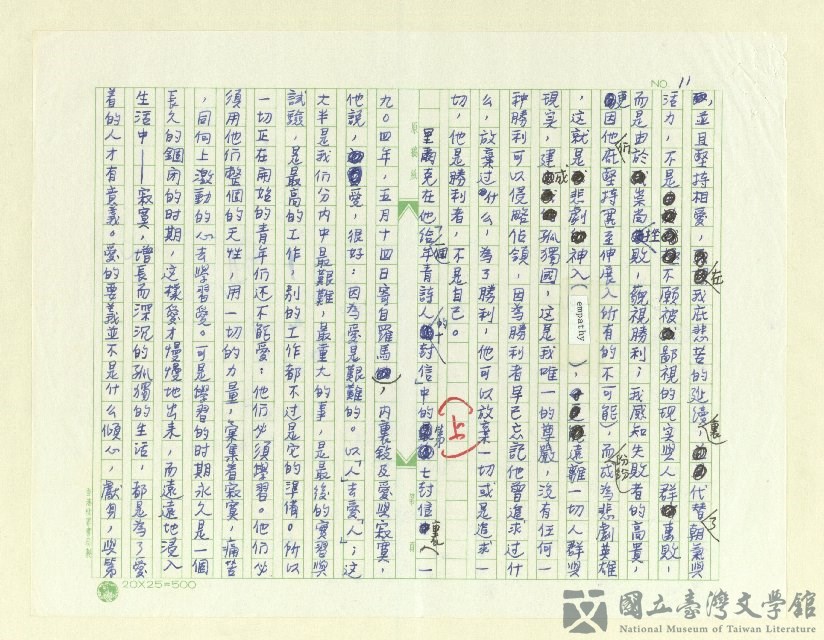 NO 11
，並且堅持相愛，在我庇悲苦的延續裏，代替朝氣與
活力，不是不願被鄙視的現實與人群棄敗，
而是由於崇尚挫敗，藐視勝利；我感知失敗者的高貴，
更因他們底堅持（甚至伸展入所有的不可能）而成為悲劇英雄
，這就是悲劇的神入（empathy），遠離一切人群與
現实，建成孤獨國，這是我唯一的尊嚴，沒有任何一
种勝利可以侵略佔領，因為勝利者早已忘記他曾追求过什
么，放棄过什么，為了勝利，他可以放棄一切或是追求一
切，他是勝利者，不是自己。
上
里爾克在他「給一個年青詩人的十封信」中的第七封信裏，一
九〇四年，五月十四日寄自羅馬，內裏談及愛與寂寞，
他說，愛，很好：因為愛是艱難的。以「人」去愛「人」：这
大半是我們份內中最艱難，最重大的事，是最後的實習與
試驗，是最高的工作，別的工作都不过是它的準備。所以
一切正在開始的青年們还不能愛：他們必須學習。他們必
須用他們整個的天性，用一切的力量，聚集着寂寞，痛苦
，同向上激動的心去學習愛。可是學習的时期永久是一個
長久的錮閉的时期，这樣愛才慢慢地出來，而遠遠地浸入
生活中——寂寞，增長而深沉的孤獨的生活，都是為了愛
着的人才有意義。愛的要義並不是什么傾心，獻身，與第
20X25=500
國立臺灣文學館
National Museum of Taiwan Literature